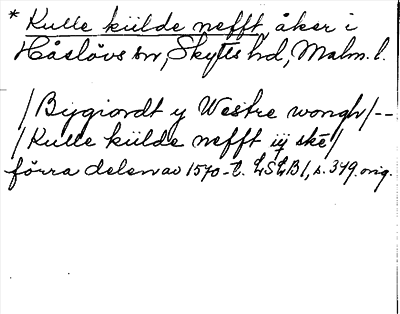 * Kulle kiilde nefft, åker i
Håslövs sn, Skytts hd, Malm. l.
/Bygiordt y Westre wongh/--
/Kulle kiilde nefft iij ske/
förra delen av 1570-t. LSLB1, s. 379. orig.